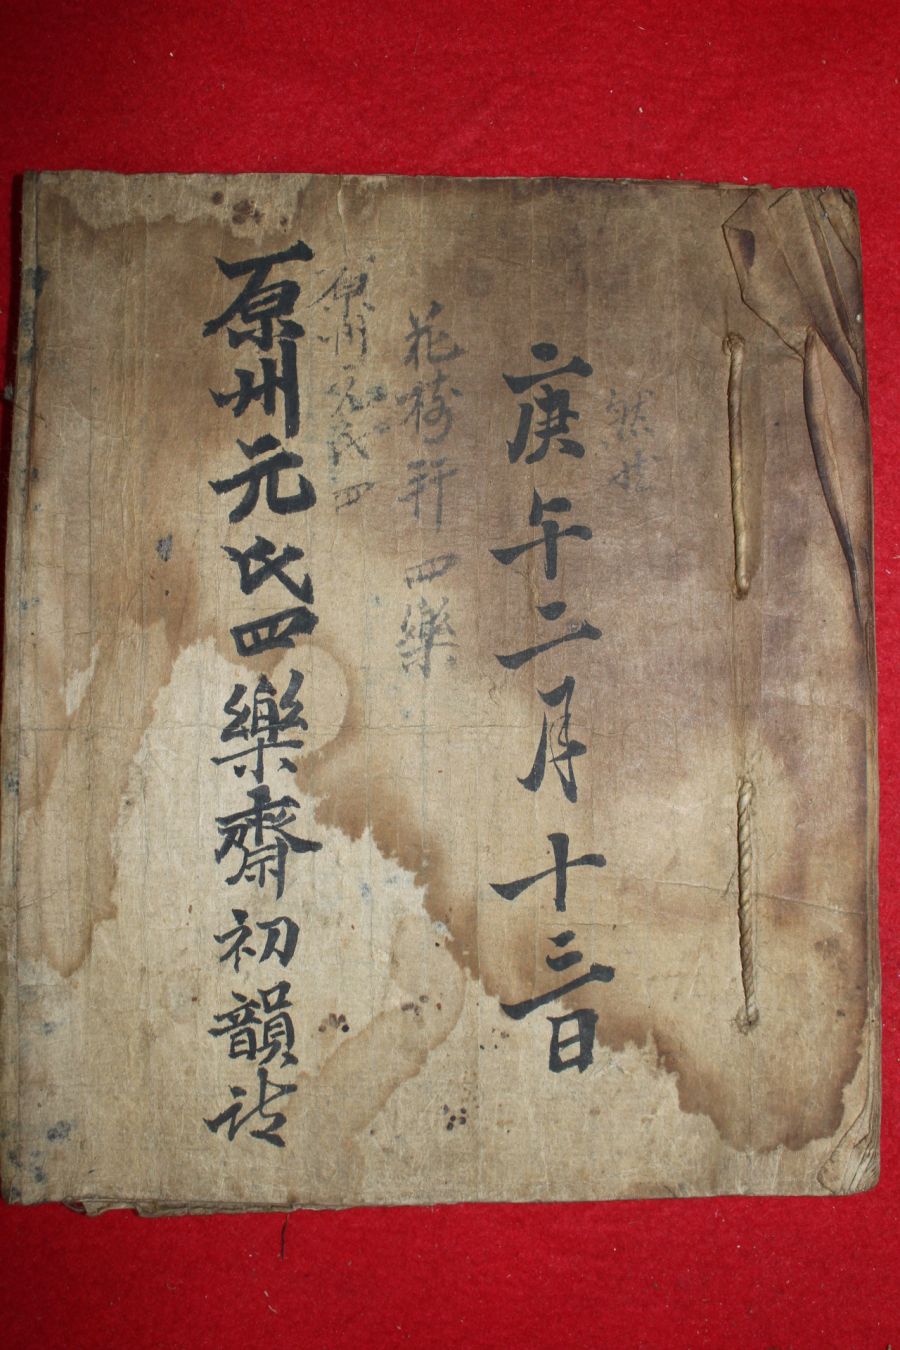 庚午二月十三日
花樹軒四樂
原州元氏四
原州元氏四樂齋初韻誌